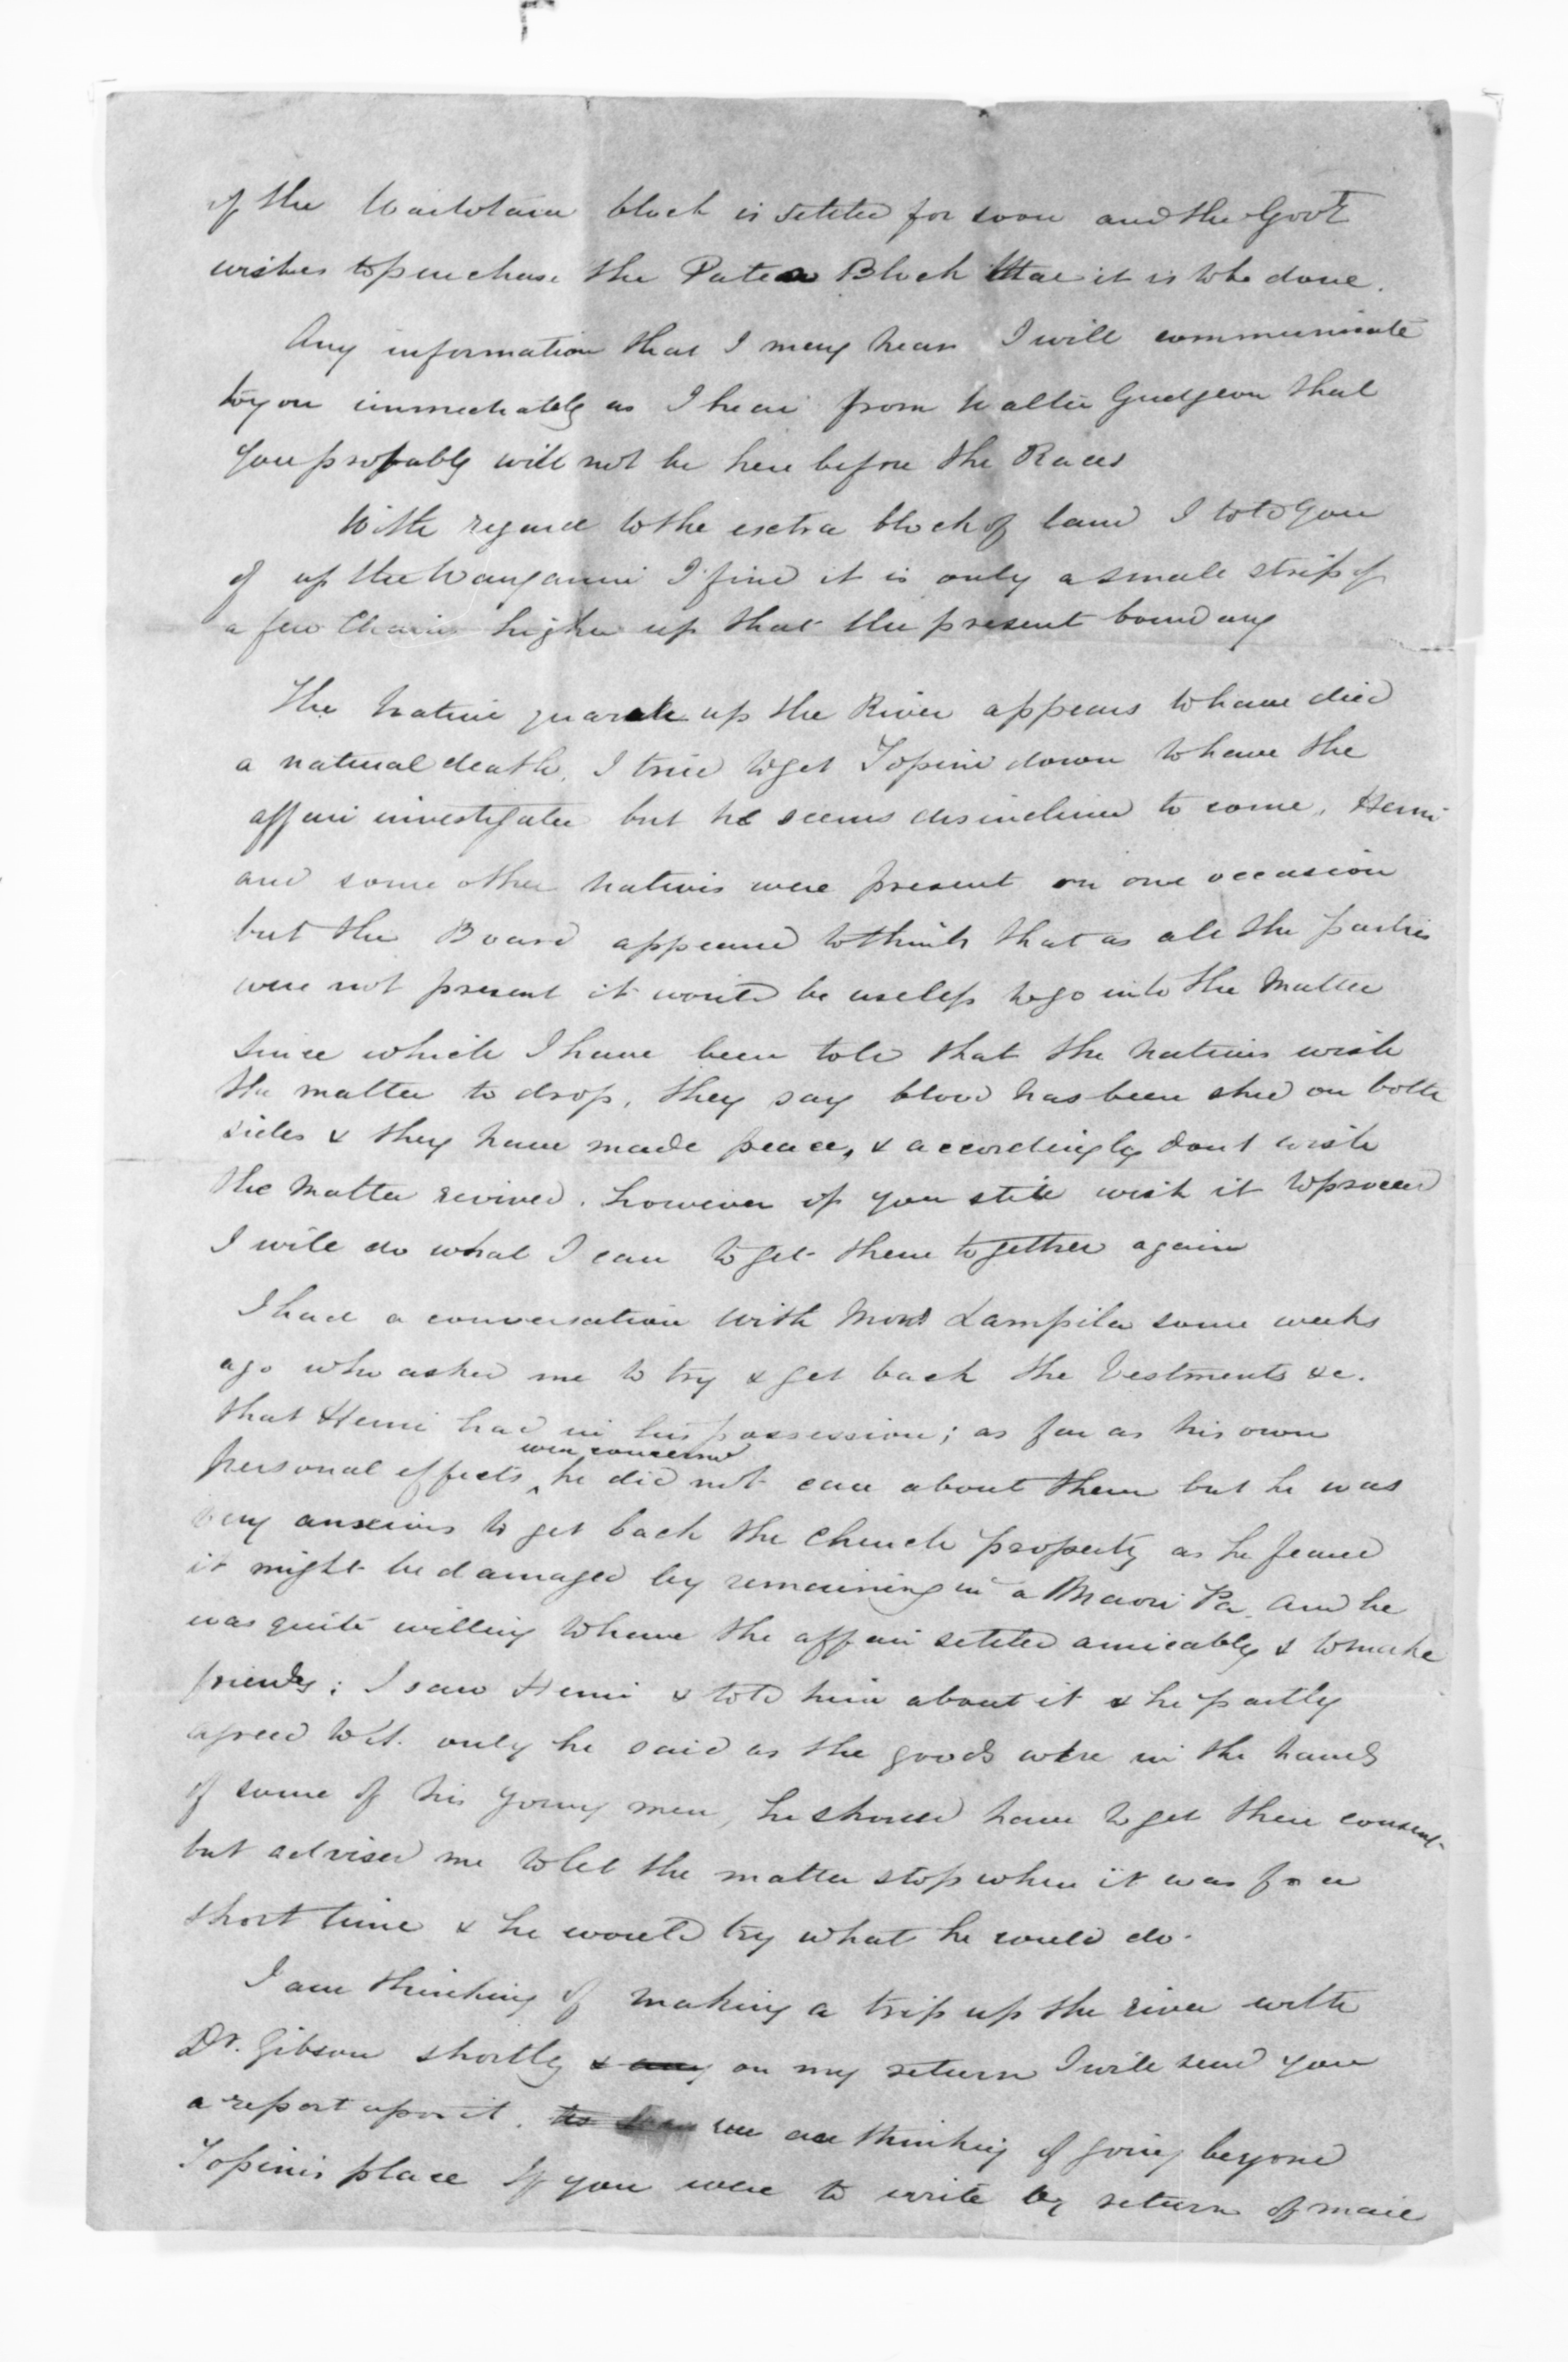 of the Waitotara block is settled for soon and the Govt
wishes to purchase the Patea Block that it is to be done.
Any information that I may hear I will communicate
to you immediately as I hear from Walter Gudgeon that
you probably will not be here before the Races
With regard to the extra block of land I told you
of up the Wanganui I find it is only a small strip of
a few Chains higher up that the present boundary
The Native quarrel up the River appears to have died
a natural death, I tried to get Topini down to have the
affair investigated but he seems disinclined to come, Hemi
and some other natives were present on one occasion
but the Board appeared to think that as all the parties
were not present it would be useless to go into the Matter
since which I have been told that the natives wish
the matter to drop, they say blood has been shed on both
sides & they have made peace, & accordingly dont wish
the Matter revived. however if you still wish it to proceed
I will do what I can to get them together again
I had a conversation with Mons Lampila some weeks
ago who asked me to try & get back the Vestments &c.
that Hemi had in his possession; as far as his own
personal effects were concerned he did not care about them but he was
very anxious to get back the Church property as he feared
it might be damaged by remaining in a Maori Pa. And he
was quite willing to have the affair settled amicably & to make
friends; I saw Hemi & told him about it & he partly
agreed to it. only he said as the goods were in the hands
of some of his young men, he should have to get their consent
but advised me to let the matter stop where it was for a
short time & he would try what he could do.
I am thinking of making a trip up the river with
Dr. Gibson shortly & any on my return I will send you
a report upon it. we are thinking of going beyond
Topinis place If you were to write by return of mail